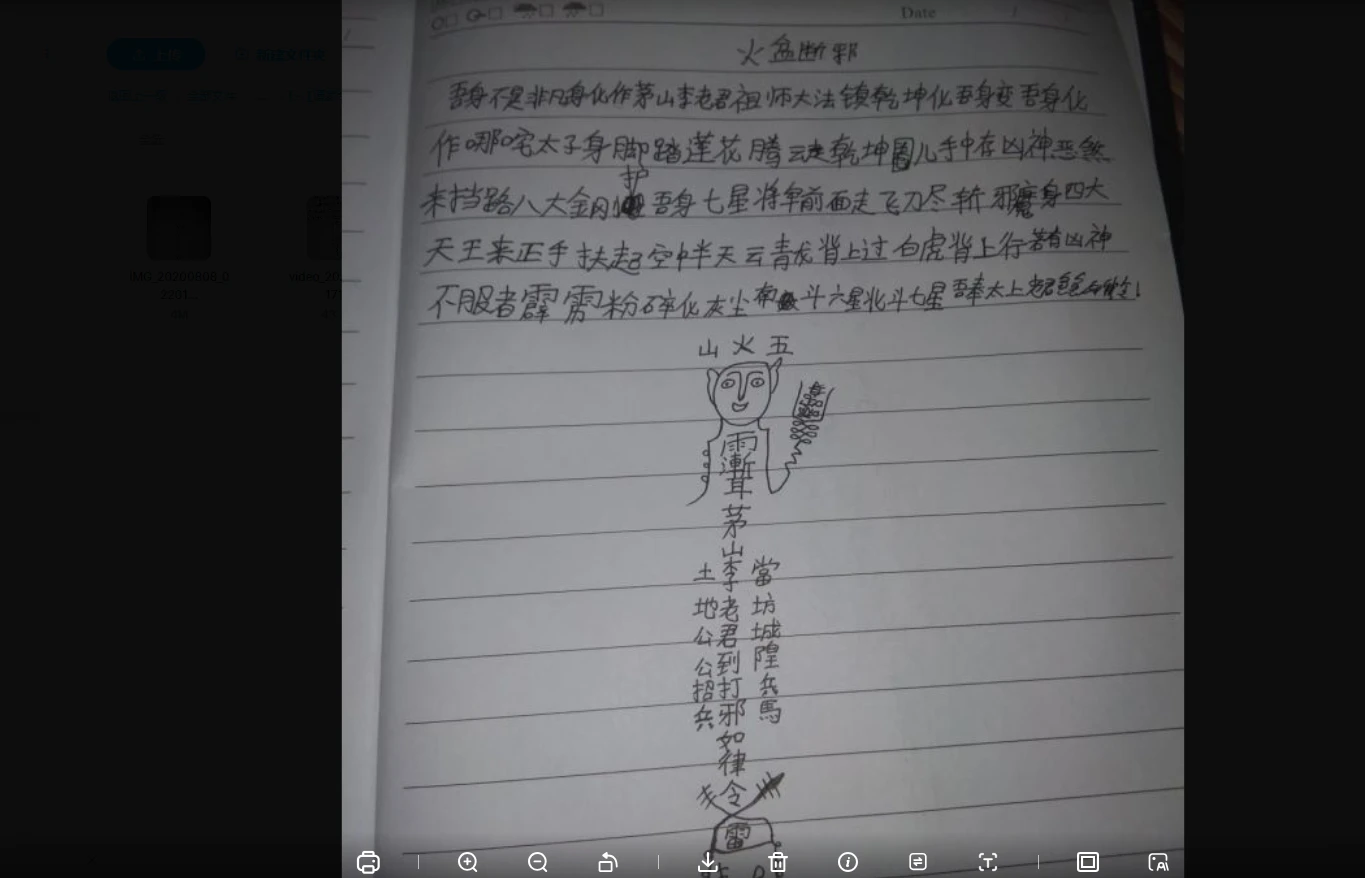 Date
火盆断邪
吾身不是非凡身化作茅山李老君祖师大法镇乾坤化吾身变吾身化
作哪吒太子身脚踏莲花腾云走乾坤圈儿手中存凶神恶煞
来挡路八大金刚护吾身七星将军前面走飞刀尽斩邪魔身四大
天王来正手扶起空中半天云青龙背上过白虎背上行若有凶神
不服者霹雳粉碎化灰尘南斗六星北斗七星吾奉太上老君急急如律令！
山火五
雨
漸
耳
茅山李老君到打邪如律令
當坊城隍兵馬
土地公公招兵
雷